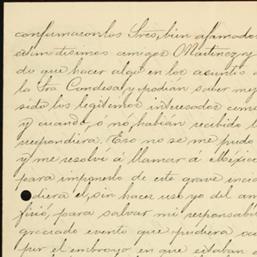 confirmaron los Sres, bien afamados
estimadisimos amigos Martinez y
do que hacer algo en los asuntos d
la Sra Condesa, y podian saber mej
sido los legitimos interesados como
y cuando, ó nó, habian recibido l
respondiera. Eso no se me pudo
y me resolví á llamar á Mexico
para imponerlo de este grave inci
diera el, sin hacer uso yo del an
fició, para salvar mi responsabi
graciado evento que pudiera ac
por el embrollo en que estaban d